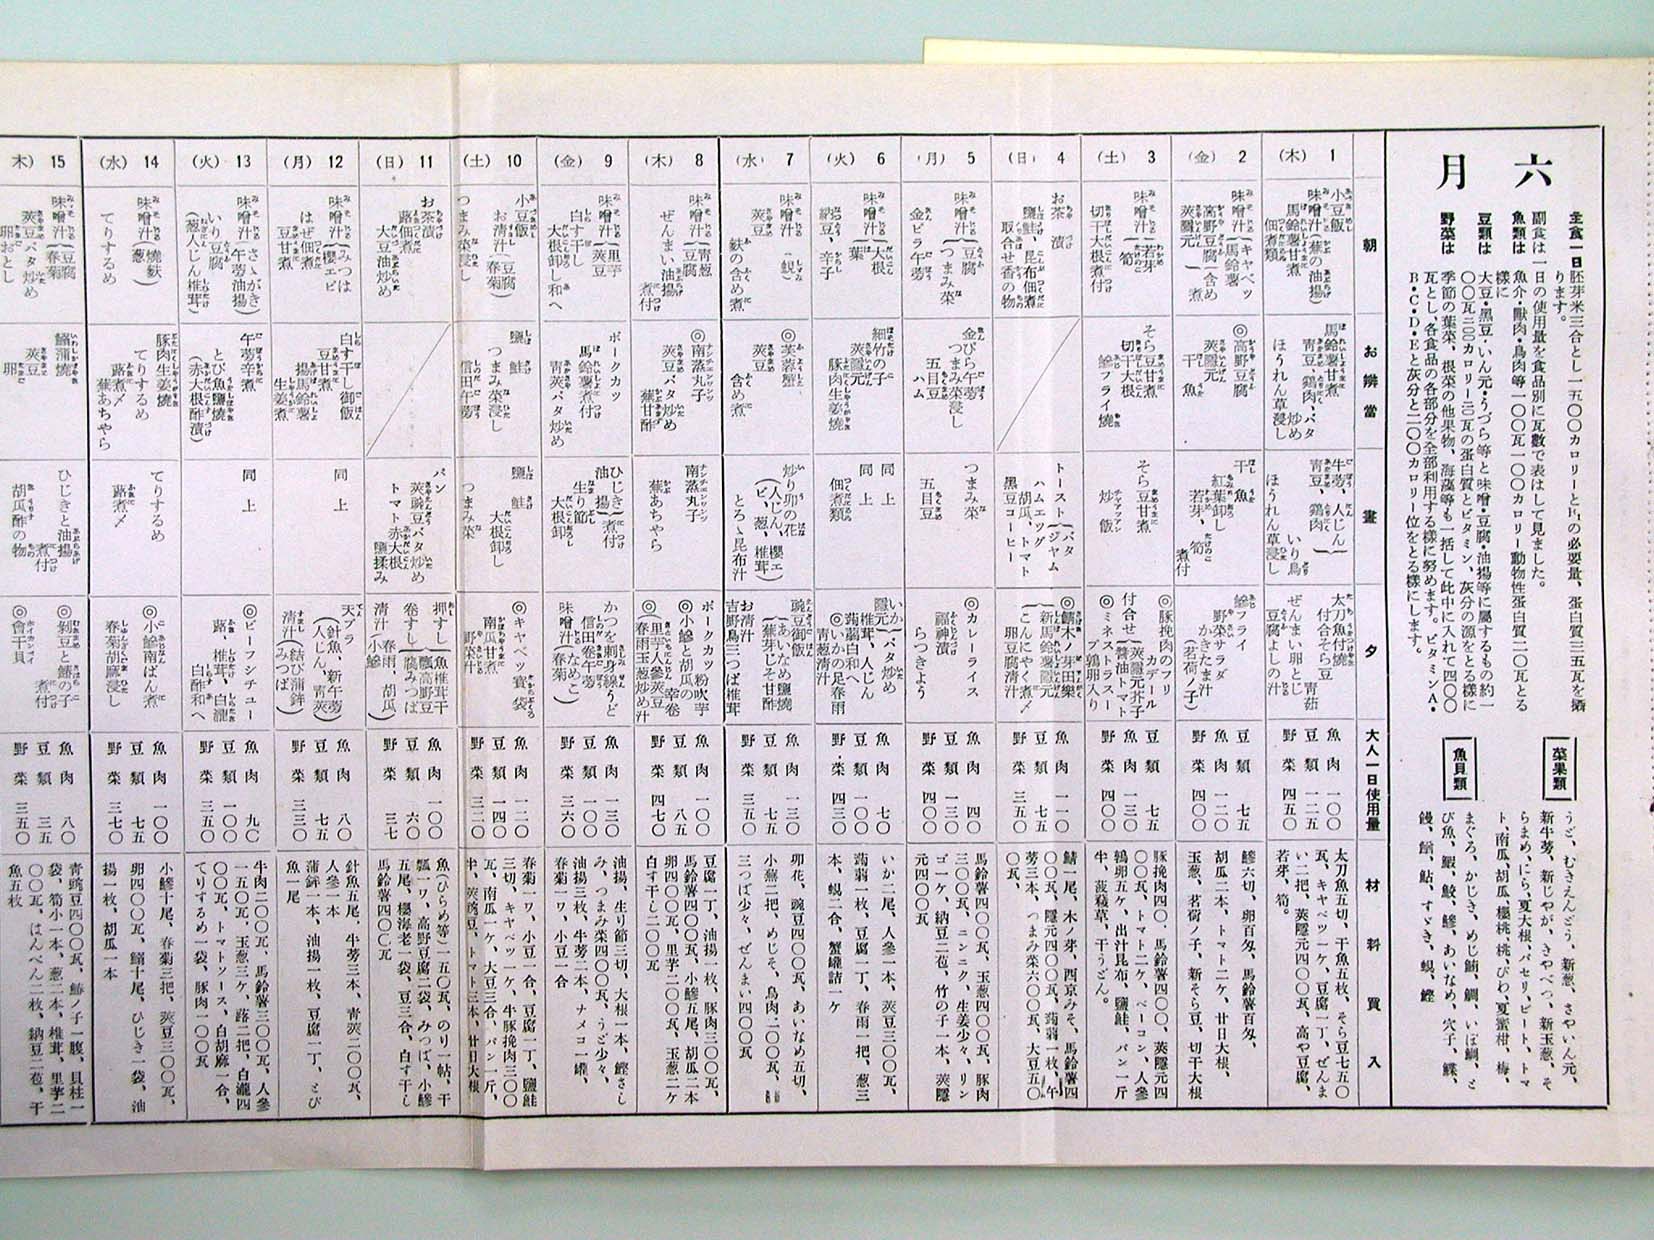 六月
主食一日胚芽米三合とし一五〇〇カロリーと
副食は一日の使用量を食品別に瓦數で表はして見ました。
魚類は 魚介・獸肉・鳥肉等一〇〇瓦一〇〇カロリー動物性蛋白質二〇瓦とる
樣に
豆類は 大豆・黑豆・いん元・うづら等と味噌・豆腐・油揚等に屬するもの約一
野菜は 季節の葉菜、根菜の他果物、海藻等も一括して此中に入れて四〇〇
瓦とし、各食品の各部分を全部利用する樣に努めます。ビタミンA・
B・C・D・Eと灰分と二〇〇カロリー位をとる樣にします。
菜果類
うど、むきえんどう、新葱、さやいん元、
新牛蒡、新じやが、きやべつ、新玉葱、そ
らまめ、にら、夏大根、パセリ、ビート、トマ
ト、南瓜胡瓜、櫻桃、桃、びわ、夏蜜柑、梅、
魚貝類
まぐろ、かじき、めじ鮪、鯛、いぼ鯛、と
び魚、鰕、鮫、鰺、あいなめ、穴子、鰈、
朝
お辨當
晝
夕
大人一日使用量
材料買入
1
(木)
小豆飯
味噌汁(蕪の油揚
馬鈴薯甘煮
佃煮類
馬鈴薯甘煮
靑豆、鷄肉、バタ炒め
ほうれん草浸し
牛蒡、人じん
靑豆、鷄肉
いり鳥
ほうれん草浸し
太刀魚付燒
付合そら豆
ぜんまい卵とじ
豆腐よしの汁
魚肉 一〇〇
豆類 一二五
野菜 四五〇
太刀魚五切、干魚五枚、そら豆七五〇
瓦、キャベツ一ケ、豆腐一丁、ぜんま
い二把、莢隱元四〇〇瓦、高や豆腐、
若芽、筍。
2
(金)
味噌汁(キャベツ
馬鈴薯
高野豆腐含め煮
莢隱元
◎高野豆腐
莢隱元
干魚
干魚
紅葉卸し
若芽、筍
煮付
鰺フライ
野菜サラダ
かきたま汁
(茗荷ノ子)
豆類 七五
魚肉 一二〇
野菜 四〇〇
鰺六切、卵百匁、馬鈴薯百匁、
胡瓜二本、トマト二ケ、廿日大根、
玉葱、茗荷ノ子、新そら豆、切干大根
3
(土)
味噌汁(若芽
筍
切干大根煮付
そら豆甘煮
切干大根
鰺フライ燒
そら豆甘煮
炒飯
◎豚挽肉のフリカデール
付合せ(莢隱元芥子
醬油トマト
◎ミネストラスープ鶉卵入り
豆類 七五
魚肉 一三〇
野菜 四〇〇
豚挽肉四〇〇、馬鈴薯四〇〇、莢隱元四
〇〇瓦、トマト二ケ、ベーコン、人參
鶉卵五ケ、出汁昆布、鹽鮭、パン一斤
牛、菠薐草、干うどん。
4
(日)
お茶漬
鹽鮭、昆布佃煮
取合せ香の物
トースト(バタ
ジャム
ハムエッグ
胡瓜、トマト
黑豆コーヒー
◎鯖木ノ芽田樂
新馬鈴薯隱元
こんにやく煮〆
卵豆腐淸汁
魚肉 一一〇
豆類 七五
野菜 三五〇
鯖一尾、木ノ芽、西京みそ、馬鈴薯四
〇〇瓦、隱元四〇〇瓦、蒟蒻一枚、午
蒡三本、つまみ菜六〇〇瓦、大豆五〇
〇瓦、
5
(月)
味噌汁(豆腐
つまみ菜
金ピラ午蒡
金ぴら午蒡
つまみ菜浸し
五目豆
ハム
つまみ菜
五目豆
◎カレーライス
福神漬
らつきよう
魚肉 四〇
豆類 一三〇
野菜 四〇〇
馬鈴薯四〇〇瓦、玉葱四〇〇瓦、豚肉
三〇〇瓦、ニンニク、生姜少々、リン
ゴ一ケ、納豆二苞、竹の子一本、莢隱
元四〇〇瓦
6
(火)
味噌汁(大根
葉
納豆、辛子
細竹の子
莢隱元
豚肉生姜燒
同上
同上
佃煮類
いか
隱元
炒め
椎茸、人じん
蒟蒻白和へ
いかの足春雨
靑葱淸汁
魚肉 七〇
豆類 一〇〇
野菜 四三〇
いか二尾、人參一本、莢豆三〇〇瓦、
蒟蒻一枚、豆腐一丁、春雨一把、葱三
本、蜆二合、蟹罐詰一ケ
7
(水)
味噌汁(蜆)
麩の含め煮
莢豆
◎芙蓉蟹
莢豆
含め煮
炒り卯の花
(人じん、櫻エ
ビ、葱、椎茸)
とろゝ昆布汁
豌豆御飯
あいなめ鹽燒
蕪芽じそ甘酢
お淸汁
吉野鳥三つば椎茸
魚肉 一三〇
豆類 七五
野菜 三五〇
卵花、豌豆四〇〇瓦、あいなめ五切、
小蕪二把、めじそ、鳥肉二〇〇瓦、
三つば少々、ぜんまい四〇〇瓦
8
(木)
味噌汁(靑葱
豆腐
ぜんまい油揚
煮付
◎南蒸丸子
莢豆バタ炒め
蕪甘酢
南蒸丸子
蕪あちやら
ポークカツ粉吹芋
◎小鰺と胡瓜の幸卷
◎里芋人參莢豆
春雨玉葱炒め汁
魚肉 一〇〇
豆類 八五
野菜 四七〇
豆腐一丁、油揚一枚、豚肉三〇〇瓦、
馬鈴薯四〇〇瓦、小鰺五尾、胡瓜二本
卵四〇〇瓦、里芋二〇〇瓦、玉葱二ケ
白す干し二〇〇瓦
9
(金)
味噌汁(里芋
莢豆
白す干し
大根卸し和へ
ポークカツ
馬鈴薯煮付
靑莢バタ炒め
ひじき
油揚
煮付
生り節
大根卸し
かつを刺身線うど
信田卷午蒡
味噌汁(なめこ
春菊)
魚肉 一三〇
豆類 一〇〇
野菜 三六〇
油揚、生り節三切、大根一本、鰹さし
み、つまみ菜四〇〇瓦、うど少々、
油揚三枚、牛蒡二本、ナメコ一罐、
春菊一ワ、小豆一合
10
(土)
小豆飯
お淸汁(豆腐
春菊)
つまみ菜浸し
鹽鮭
つまみ菜浸し
信田午蒡
鹽鮭
大根卸し
つまみ菜
◎キャベツ寶袋
南瓜甘煮
野菜汁
魚肉 一二〇
豆類 一四〇
野菜 三二〇
春菊一ワ、小豆一合、豆腐一丁、鹽鮭
三切、キャベツ一ケ、牛豚挽肉三〇〇
瓦、南瓜一ケ、大豆三合、パン一斤、
半、莢豌豆、トマト三本、廿日大根
11
(日)
お茶漬
蕗佃煮
大豆油炒め
パン
莢豌豆バタ炒め
トマト赤大根
鹽揉み
押すし(魚椎茸干
瓢高野豆
腐みつば
卷すし
淸汁(春雨、胡瓜
小鰺)
魚肉 一〇〇
豆類 六〇
野菜 三七
魚(ひらめ等)一五〇瓦、のり一帖、干
瓢一ワ、高野豆腐二袋、みつば、小鰺
五尾、櫻海老一袋、豆三合、白す干し
馬鈴薯四〇〇瓦
12
(月)
味噌汁(みつは
櫻エビ
はぜ佃煮
豆甘煮
白す干し御飯
豆甘煮
揚馬鈴薯
生姜煮
同上
天プラ
(針魚、新午蒡
人じん、靑莢)
淸汁(結び蒲鉾
みつば)
魚肉 八〇
豆類 七五
野菜 三三〇
針魚五尾、牛蒡三本、靑莢二〇〇瓦、
人參一本
蒲鉾一本、油揚一枚、豆腐一丁、とび
魚一尾
13
(火)
味噌汁(さゝがき
午蒡油揚)
いり豆腐
(葱人じん椎茸)
午蒡辛煮
とび魚鹽燒
(赤大根酢漬)
同上
◎ビーフシチュー
蕗、椎茸、白瀧
白酢和へ
魚肉 九〇
豆類 一〇〇
野菜 三五〇
牛肉二〇〇瓦、馬鈴薯三〇〇瓦、人參
一五〇瓦、玉葱三ケ、蕗二把、白瀧四
〇〇瓦、トマトソース、白胡麻一合、
てりするめ一袋、豚肉一〇〇瓦
14
(水)
味噌汁(燒麩
葱)
てりするめ
豚肉生姜燒
てりするめ
蕗煮〆
蕪あちやら
てりするめ
蕗煮〆
◎小鰺南ばん煮
春菊胡麻浸し
魚肉 一〇〇
豆類 七五
野菜 三七〇
小鰺十尾、春菊三把、莢豆三〇〇瓦、
卵四〇〇瓦、鰯十尾、ひじき一袋、油
揚一枚、胡瓜一本
15
木)
味噌汁(豆腐
春菊
莢豆バタ炒め
卵おとし
鰯蒲燒
莢豆
卵
ひじきと油揚
煮付
胡瓜酢の物
◎剝豆と鰆の子
煮付
◎會干貝
魚肉 八〇
豆類 三五
野菜 三五〇
靑豌豆四〇〇瓦、鰆ノ子一腹、貝柱一
袋、筍小一本、葱二本、椎茸、里芋二
〇〇瓦、はんぺん二枚、納豆二苞、干
魚五枚